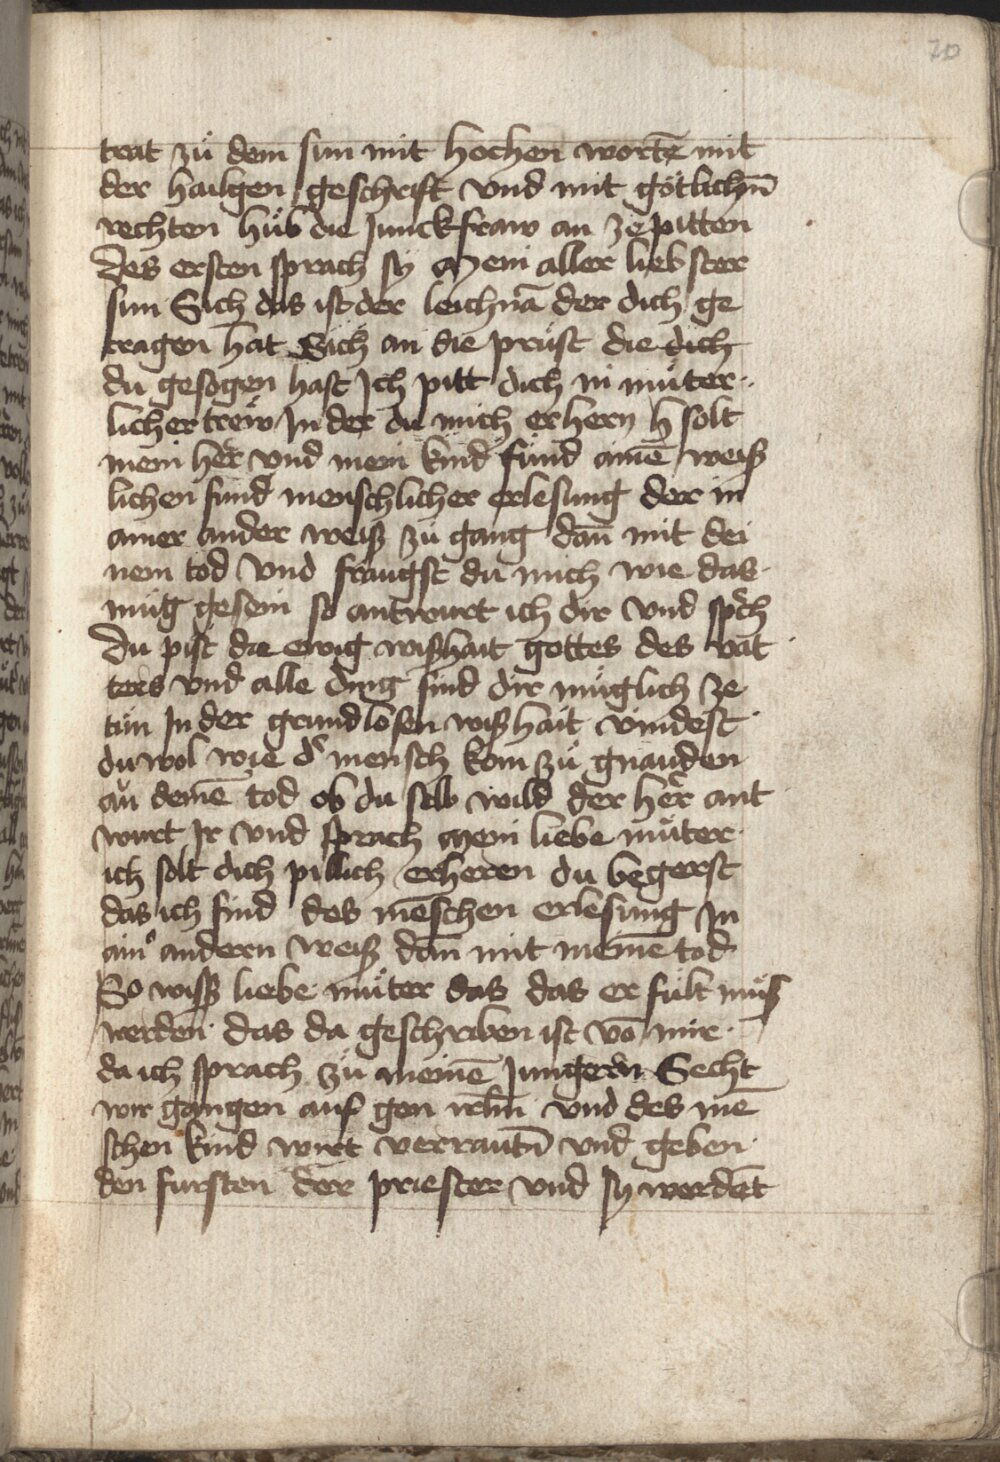 20
trat zů dem sun mit hochen wortē mit
der hailgen geschrift vnd mit götlichn̄
rechten hůb die Junckfraw an ze pitten
Des ersten sprach sy Mein aller liebster
sun Sich das ist der leichnā der dich ge
tragen hat Sich an die prüst die dich
du gesogen hast Ich pitt dich in můter
licher trew In der du mich erhern solt
mein her vnd mein kind find ainē weiß
lichen fund menschlicher erlesung der in
ainer ander weiß zů gang dan̄ mit dei
nem tod Vnd fraugst du mich wie das
müg gesein so antwurt ich dir vnd sprch
Du pist die ewig wißhait gottes des vat
ters vnd alle ding sind dir müglich ze
tůn In der grundlosen wißhait vindest
du wol wie ds mensch kom zů gnauden
an deinē tod ob du selb wild der her ant
wurt Ir vnd sprach Mein liebe můter
ich solt dich pillich erheren du begerst
das ich find des mēschen erlesung In
ainr andern weiß dan̄ mit meinē tod
So wiß liebe můter das das er fült můß
werden das da geschriben ist vō mir
da ich sprach zů meinē Jungern Secht
wir gangen auf gen irlm̄ vnd des mē
schen kind wirt verrautn̄ vnd geben
den fursten der priester vnd sy werdēt